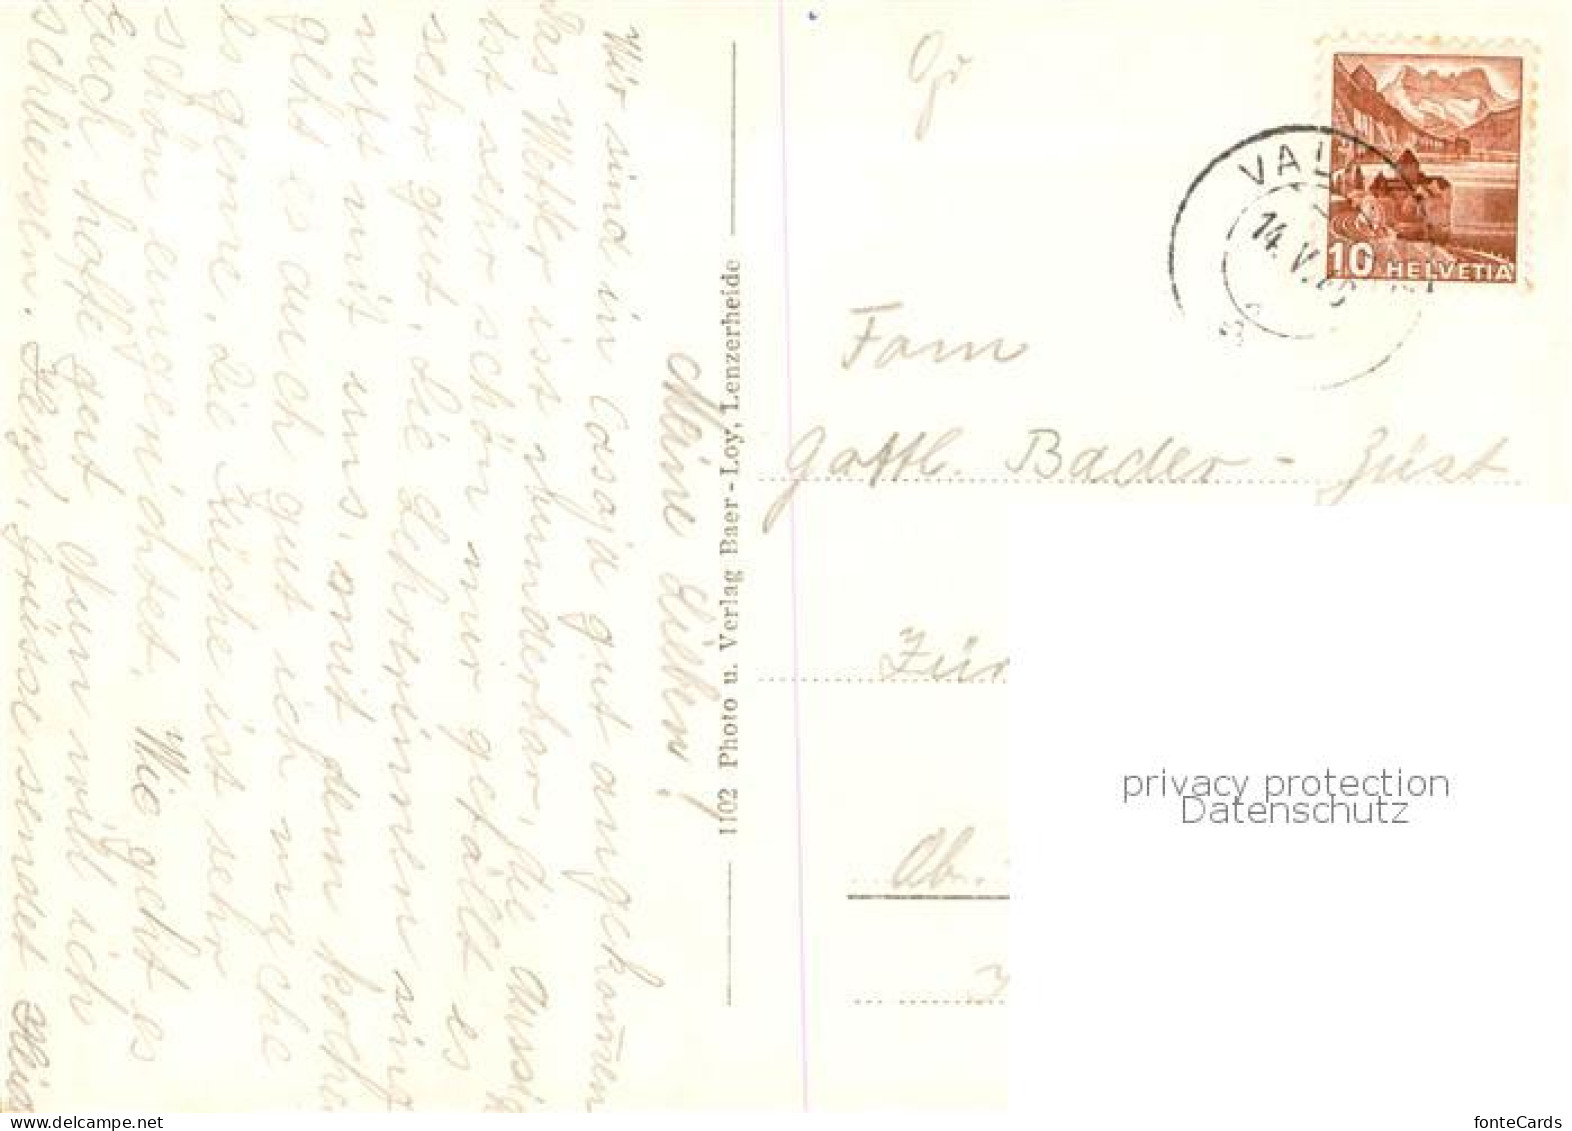 Meine Lieben!
Wir sind in Casoja gut angekommen
Das Wetter ist wunderbar, die Aussi
ist sehr schön mir gefällt es
sehr gut, die Lehrerinnen sing
nett mit uns, mit dem koche
geht es auch gut ich mache
es gerne, die Küche ist sehr
schön eingerichtet. Wie geht es
Euch hoffe gut Nun will ich
schliessen. Herzl. grüsse sendet
1102 Photo u. Verlag Baer-Loy, Lenzerheide
VAL
14. V.
10 HELVETIA
Fam
Gottl. Bader - Züst
Zür
Ob.
privacy protection
Datenschutz
www.delcampe.net
fonteCards